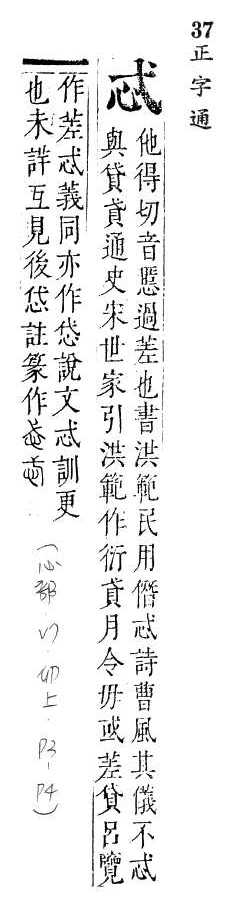 37正字通
忒
他得切音慝過差也書洪範民用僭忒詩曹風其儀不忒
與貸貣通史宋世家引洪範作衍貣月令毋或差貸呂覽
作差忒義同亦作說文忒訓更
也未詳互見後註篆作
(心部・卯上・P3-P4)